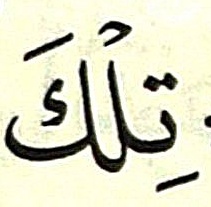 تِلْكَ